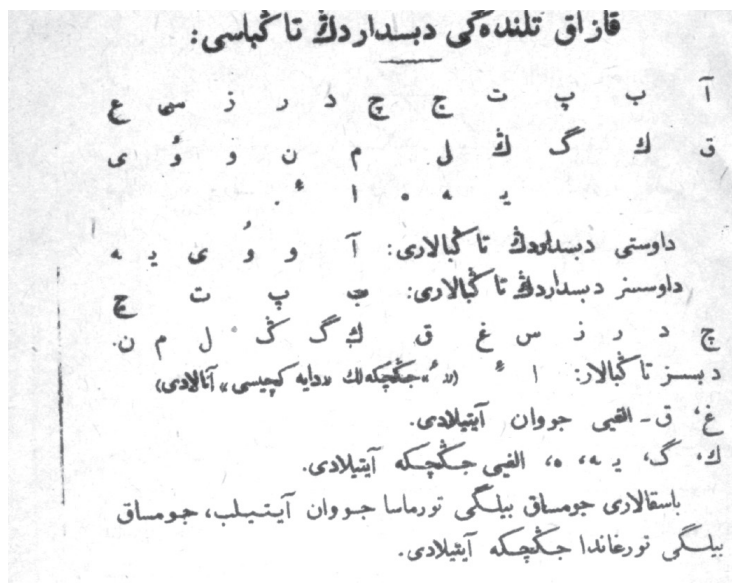 قازاق تلندەگی دبسداردڭ تاڭباسی:
آ ب پ ت ج چ د ر ز س ع
ق ك گ ڭ ل م ن و وُ ی
ي ە ه ا ء.
داوستی دبسداردڭ تاڭبالاری: آ و وُ ی ي ە
داوسسز دبسداردڭ تاڭبالاری: ب پ ت ج
چ د ر ز س غ ق ك گ ڭ ل م ن.
دبسسز تاڭبالار: ا ء («ء» جڭچكەلك «دایە كچیسی» آتالادی)
غ، ق - الفیی جووان آیتیلادی.
ك، گ، ي ە، ه، الفیی جڭچكە آیتیلادی.
باسقالاری جومساق بیلگی تورماسا جووان آیتیلب، جومساق
بیلگی تورغاندا جڭچكە آیتیلادی.